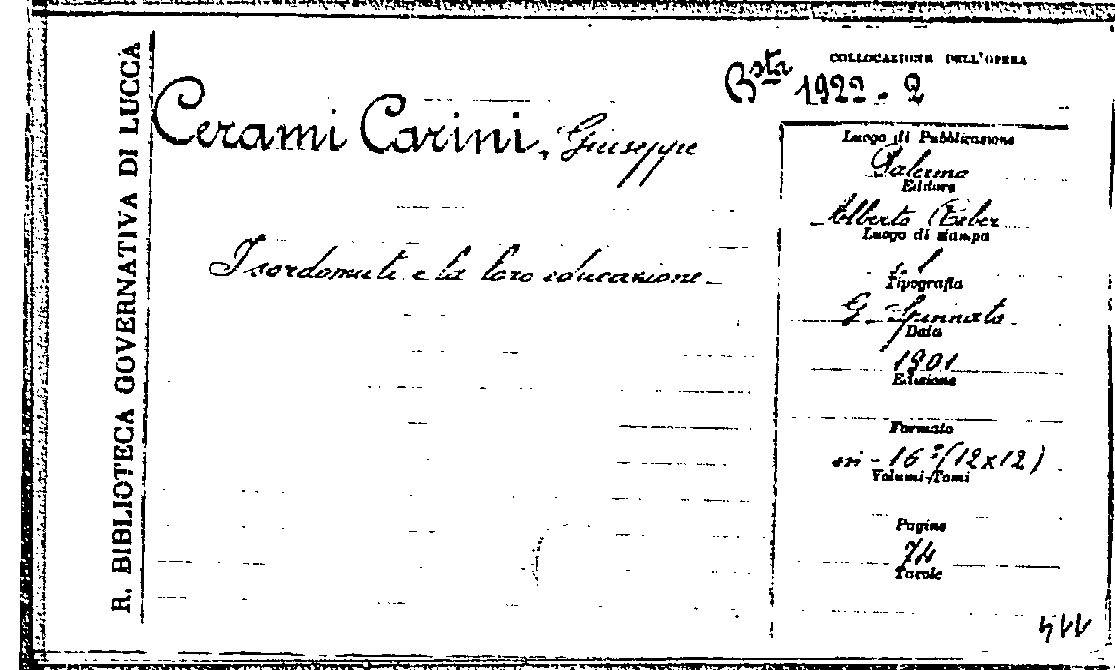 R. BIBLIOTECA GOVERNATIVA DI LUCCA
COLLOCAZIONE DELL'OPERA
Bsta 1922 - 2
Cerami Carini, Giuseppe
I sordomuti e la loro educazione
Luogo di Pubblicazione
Palermo
Editore
Alberto Reber
Luogo di stampa
Tipografia
G. Spinnato
Data
1901
Edizione
Formato
in-16º (12x12)
Volumi-Tomi
Pagine
74
Tavole